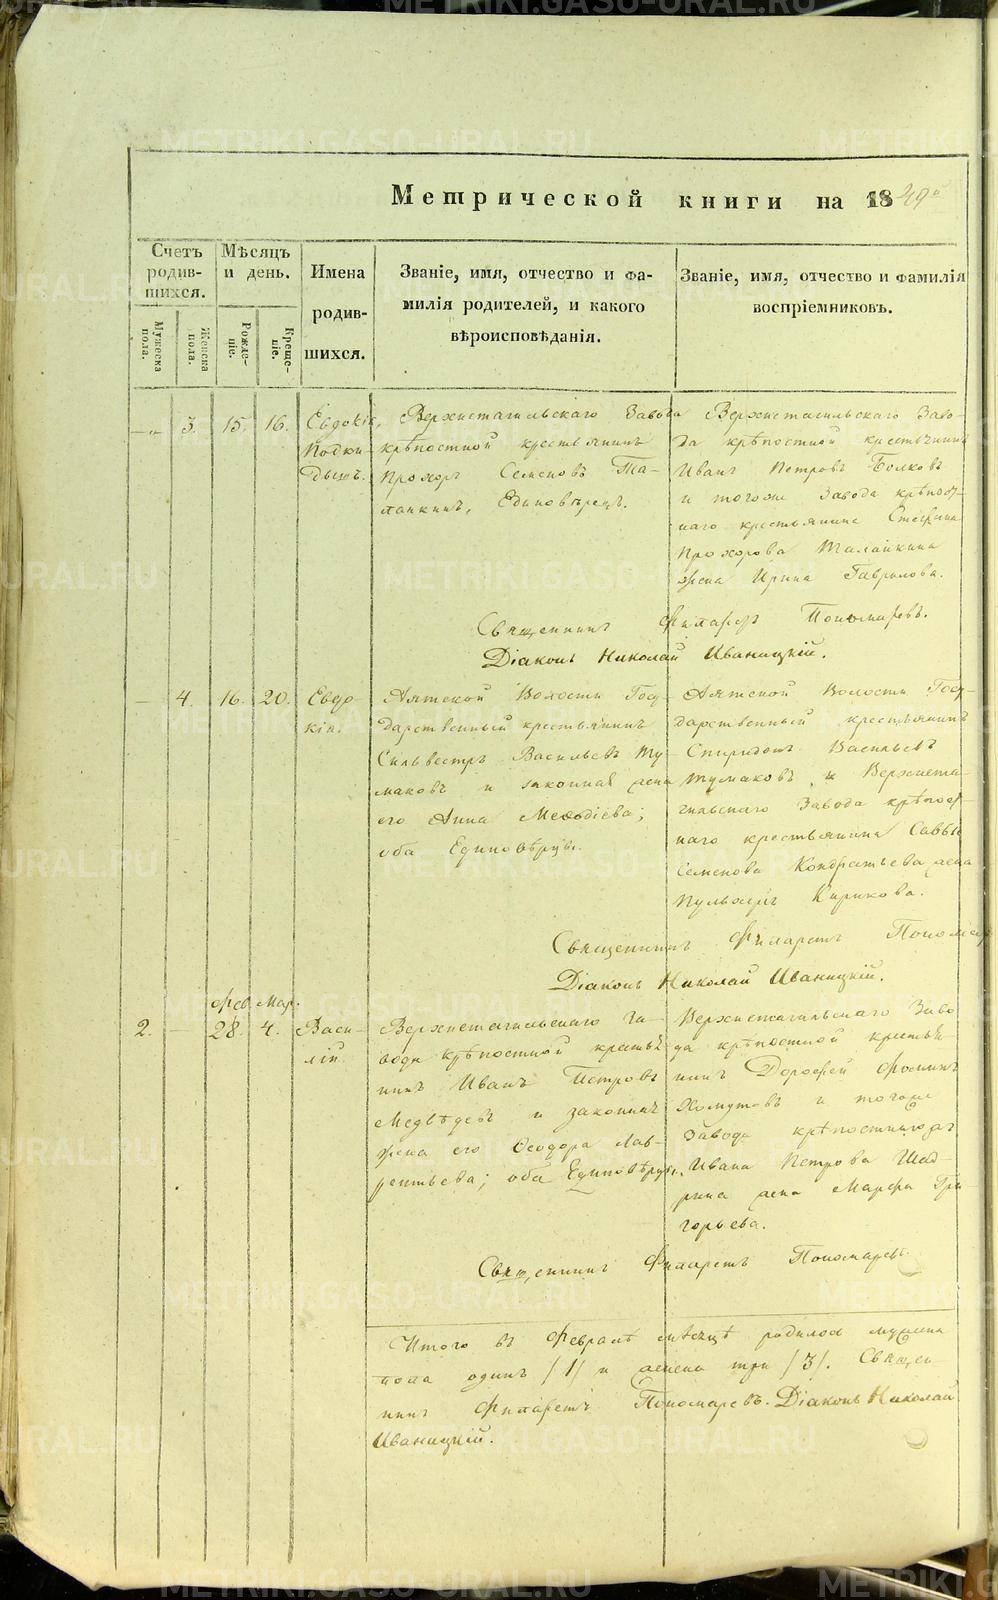 METRIKI.GASO-URAL.RU
Метрической книги на 1849
Счетъ родив-шихся.
Мѣсяцъ и день.
Имена родив-шихся.
Званіе, имя, отчество и фа-
милія родителей, и какого
вѣроисповѣданія.
Званіе, имя, отчество и фамилія
воспріемниковъ.
Мужеска пола.
Женска пола.
Рожде-ніе.
Креще-ніе.
3. 15. 16.
Евдокія,
Подки-
дышъ.
Верхнетагильскаго Завода
крѣпостной крестьянинъ
Прохоръ Семеновъ Та-
ланкинъ, Единовѣрецъ.
Верхнетагильскаго Заво-
да крѣпостной крестьянинъ
Иванъ Петровъ Волковъ
и тогоже Завода крѣпост-
наго крестьянина Стефана
Прохорова Талайкина
жена Ирина Гаврилова.
Священникъ Филаретъ Пономаревъ.
Діаконъ Николай Иваницкій.
4. 16. 20.
Евдо-
кія.
Аятской Волости Госу-
дарственный крестьянинъ
Сильвестръ Васильевъ Ту-
маковъ и законная жена
его Анна Меѳодіева;
оба Единовѣрцы.
Аятской Волости Госу-
дарственный крестьянинъ
Спиридонъ Васильевъ
Тумаковъ и Верхнета-
гильскаго Завода крѣпост-
наго крестьянина Саввы
Семенова Кондратьева жена
Пульхерія Кирикова.
Священникъ Филаретъ Пономар
Діаконъ Николай Иваницкій.
Фев. Мар.
2. 28. 4.
Васи-
лій.
Верхнетагильскаго За-
вода крѣпостной крестья-
нинъ Иванъ Петровъ
Медвѣдевъ и законная
жена его Ѳеодора Лав-
рентьева; оба Единовѣрцы.
Верхнетагильскаго Заво
да крѣпостной крестья-
нинъ Дороѳей Фоминъ
Хомутовъ и тогоже
Завода крѣпостнаго кр
Ивана Петрова Шад-
рина жена Марфа Гри-
горьева.
Священникъ Филаретъ Пономаревъ
Итого въ Февралѣ мѣсяцѣ родилось мужеска
пола одинъ /1/ и женска три /3/. Священ-
никъ Филаретъ Пономаревъ. Діаконъ Николай
Иваницкій.